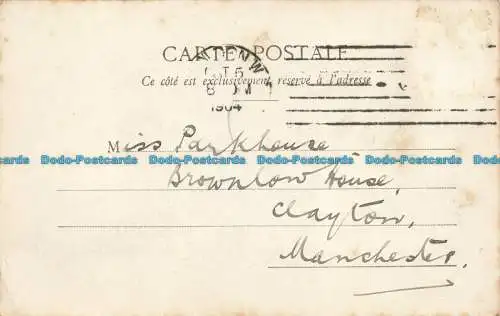 CARTE POSTALE
Ce côté est exclusivement reservé à l'adresse
8
1904
Miss Parkhouse
Dodo-Postcards Dodo-Postcards Dodo-Postcards Dodo-Postcards Dodo-Postcards
Brownlow House,
Clayton,
Manchester.